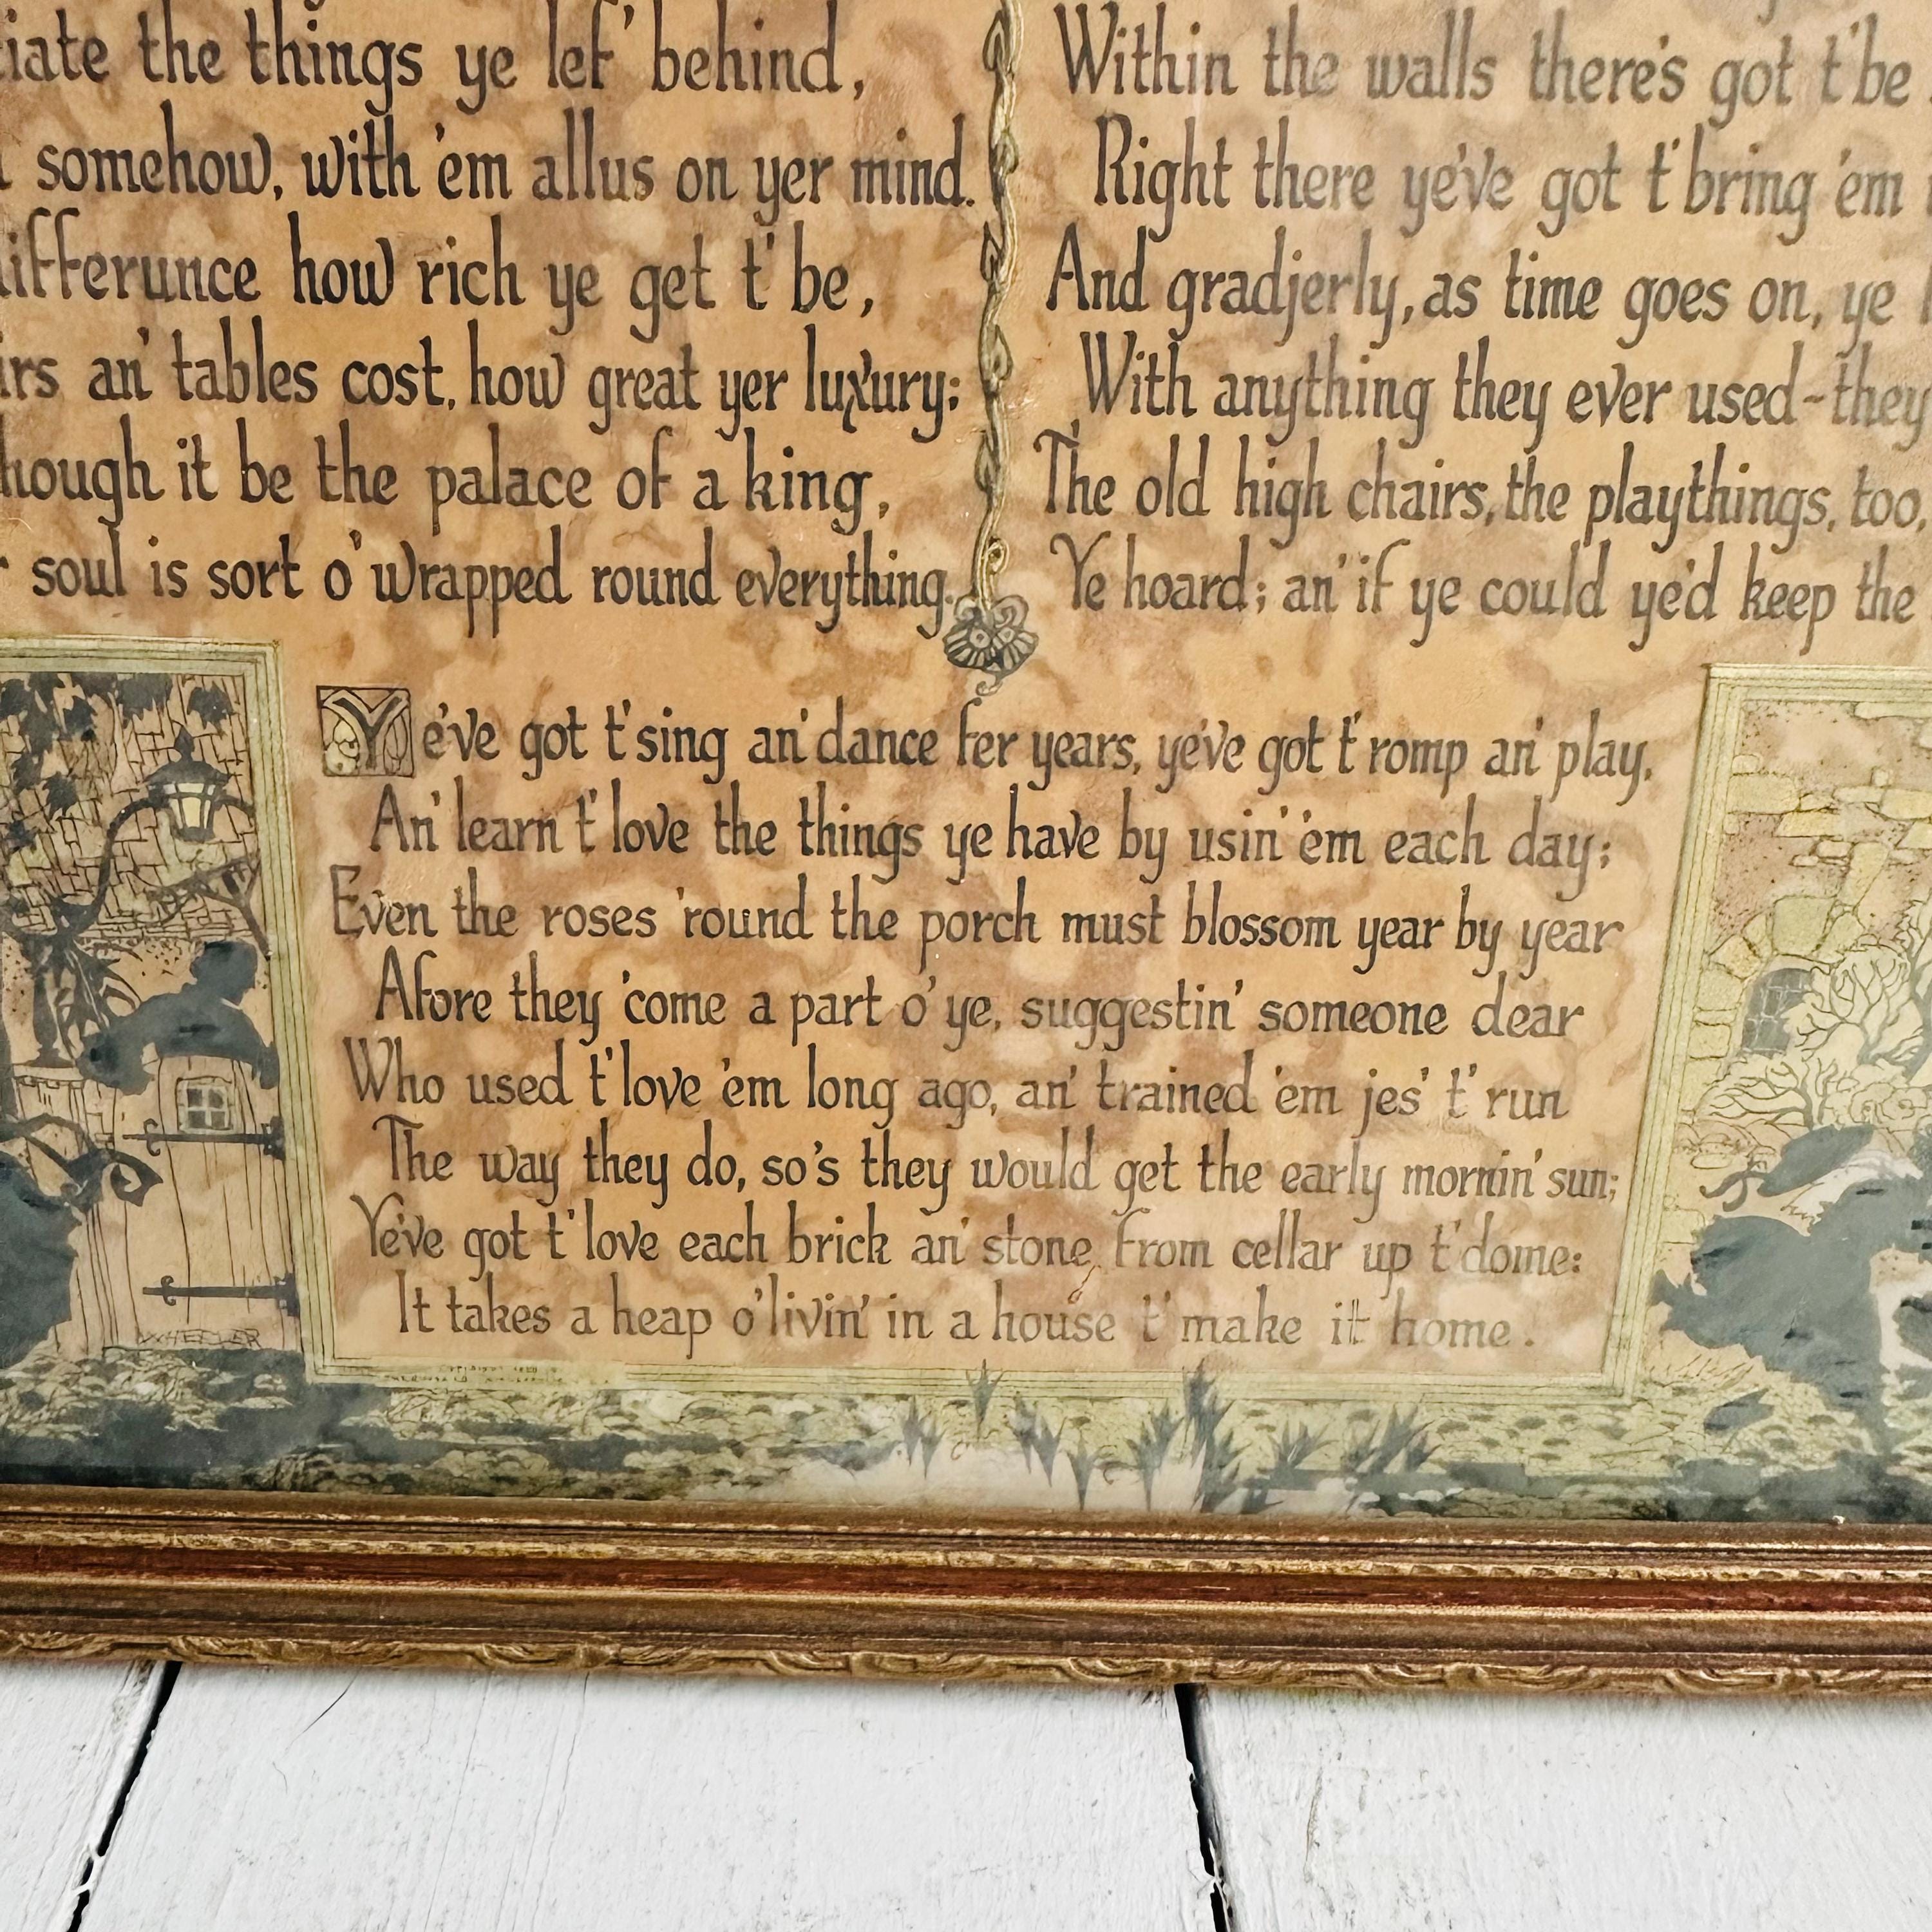 the things ye lef' behind,
somehow, with 'em allus on yer mind.
how rich ye get t' be,
an' tables cost, how great yer luxury;
it be the palace of a king,
soul is sort o' wrapped round everything.
Within the walls there's got t' be
Right there ye've got t' bring 'em
And gradjerly, as time goes on, ye
With anything they ever used~they
The old high chairs, the playthings, too,
Ye hoard; an' if ye could ye'd keep the
Ye've got t' sing an' dance fer years, ye've got t' romp an' play,
An' learn t' love the things ye have by usin' 'em each day;
Even the roses 'round the porch must blossom year by year
Afore they 'come a part o' ye, suggestin' someone dear
Who used t' love 'em long ago, an' trained 'em jes' t' run
The way they do, so's they would get the early mornin' sun;
Ye've got t' love each brick an' stone from cellar up t' dome:
It takes a heap o' livin' in a house t' make it home.
WHEELER